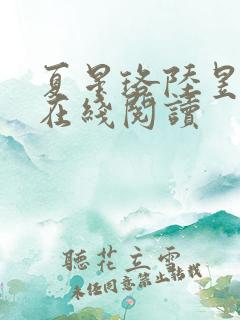 夏星珞陆昱
在线阅读
聽花立雪
未经同意禁止转载